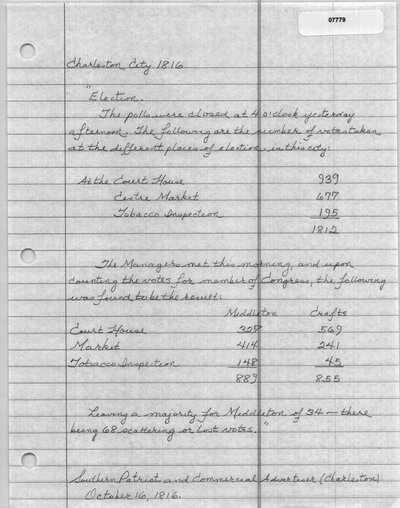 07779
Charleston City 1816
"Election.
The polls were closed at 4 o'clock yesterday
afternoon. The following are the number of votes taken
at the different places of election, in this city:
At the Court House 939
Centre Market 677
Tobacco Inspection 195
1812
The Managers met this morning, and upon
counting the votes for member of Congress, the following
was found to be the result:
Middleton Crafts
Court House 327 569
Market 414 241
Tobacco Inspection 148 45
889 855
Leaving a majority for Middleton of 34 — there
being 68 scattering or lost votes."
Southern Patriot and Commercial Advertiser (Charleston)
October 16, 1816.